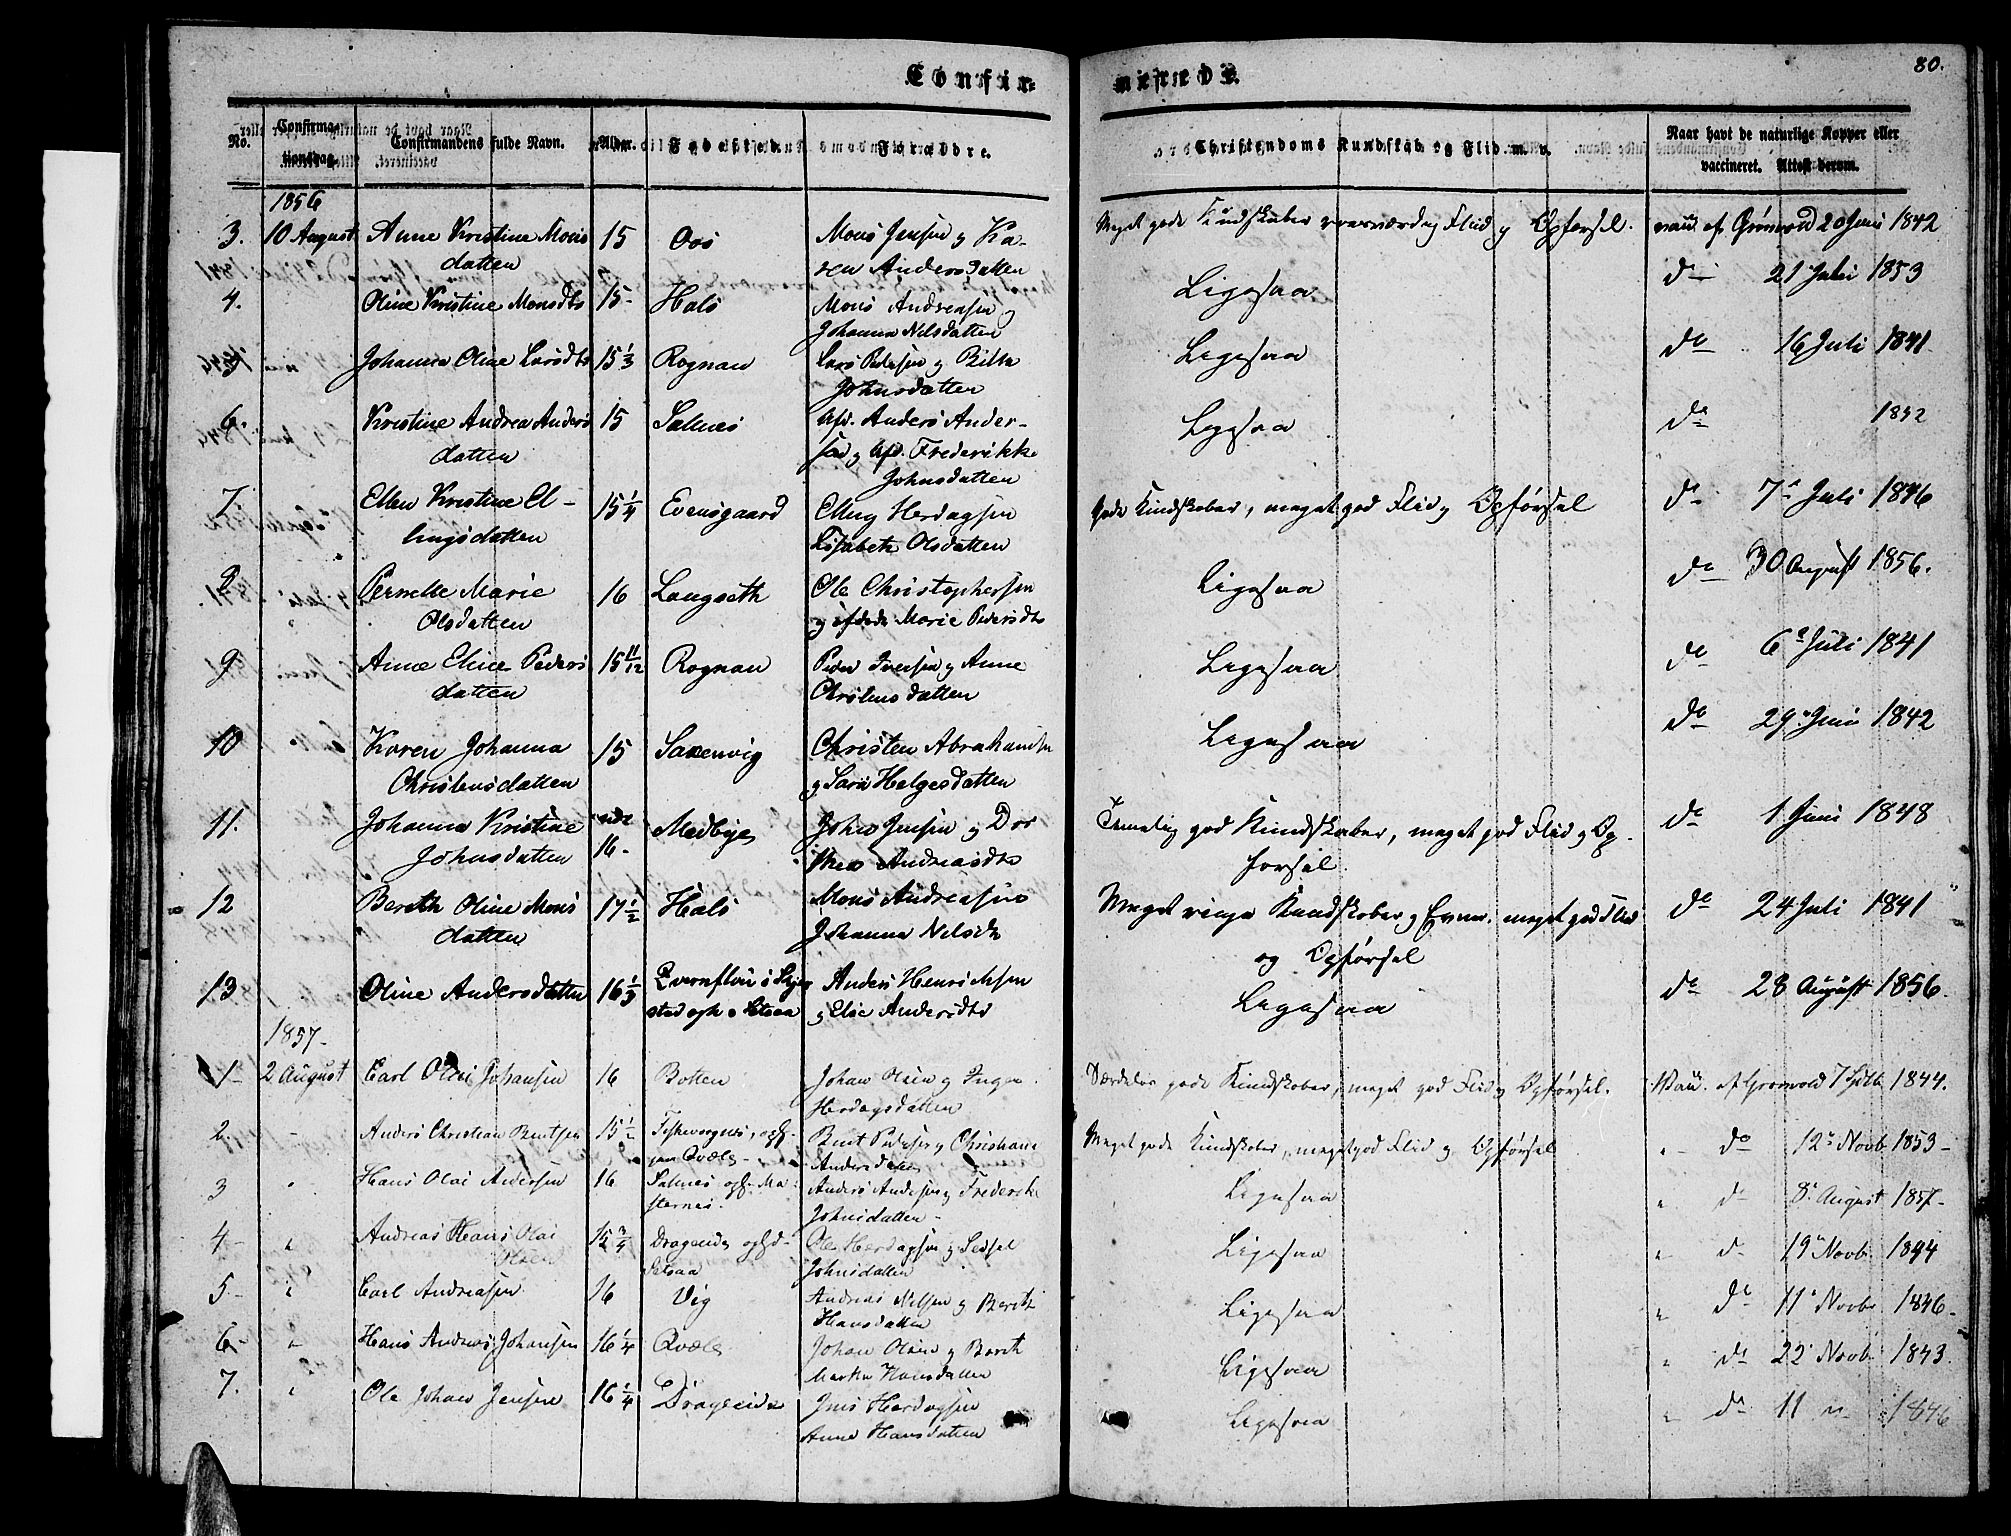 80.
Confirmerede.
No.
Confirmationsdag.
Confirmandens fulde Navn.
Alder.
Fødested.
Forældre.
Christendoms Kundskab og Flid m. v.
Naar havt de naturlige Kopper eller vaccineret. Attest derom.
1856
3. 10 August Anne Kristine Mons 15 Oos Mons Jensen og Ka- Meget gode Kundskaber roesværdig Flid og Opførsel. vacc. af Grönvold 20 Juni 1842
datter ren Andersdatter
4. Oline Kristine Monsdtr 15 Hals Mons Andreasen og Ligesaa do 21 Juli 1853
Johanna Nilsdatter
Johanna Oline Larsdtr 15 1/3 Rognan Lars Pedersen og Ligesaa do 16 Juli 1841
Johnsdatter
6. Kristine Andrea Anders 15 Salnes Afd. Anders Ander- Ligesaa do 1852
datter sen og Afd. Frederikke
Johnsdatter
7. Ellen Kristine El- 15 1/4 Evensgaard Elling Herdagsen Gode Kundskaber, meget god Flid og Opførsel do 7de Juli 1846
lingsdatter Lisabeth Olsdatter
8 Pernelle Marie 16 Langseth Ole Christophersen Ligesaa do 30 August 1856.
Olsdatter og afdøde Marie Pedersdtr
9 Anne Eline Peders 15 11/12 Rognan Peder Iversen og Anne Ligesaa do 6te Juli 1841
datter Christensdatter
10 Karen Johanna 15 Saxenvig Christen Abrahamsen Ligesaa do 29 Juni 1842
Christensdatter og Sara Helgesdatter
11. Johanna Kristine 16 Medbye John Jensen og Dor Temelig god Kundskaber, meget god Flid og Op- do 1 Juni 1848
Johnsdatter thea Andreasdtr førsel.
12 Bereth Oline Mons 17 1/2 Hals Mons Andreasen Meget ringe Kundskaber og Evner. meget god Flid do 24 Juli 1841
datter Johanna Nilsdtr og Opførsel
13 Oline Andersdatter 16 1/3 Anders Henrichsen Ligesaa do 28 August 1856.
og Else Andersdtr
1857
1 2 August Carl Olai Johansen 16 Botten Johan Olsen og Inger Særdeles gode Kundskaber, meget god Flid og Opførsel. Vacc. af Gronvold 7 Septb 1844.
Herdagsdatter
2. Anders Christian Berntsen 15 1/2 Bernt Pedersen og Christiane Meget gode Kundskaber, meget god Flid og Opførsel " do 12 Novb 1853
Andersdatter
3 " Hans Olai Andersen 16 Salnes Anders Andersen og Frederike Ligesaa " do 8 August 1857
Johnsdatter
4 " Andreas Hans Olai 15 3/4 Drageide Ole Herdagsen og Sedsel Ligesaa " do 19 Novb 1844
Olsen Setsaa Johnsdatter
5 " Carl Andreasen 16 Vig Andreas Nilsen og Bereth Ligesaa " do 11 Novbr 1846
Hansdatter
6 " Hans Andreas Johansen 16 1/4 Qvæle Johan Olsen og Bereth Ligesaa " do 22 Novb 1843.
Martha Hansdatter
7. " Ole Johan Jensen 16 1/4 Drageide Jens Herdagsen Ligesaa " do 11 " 1846
Anne Hansdatter